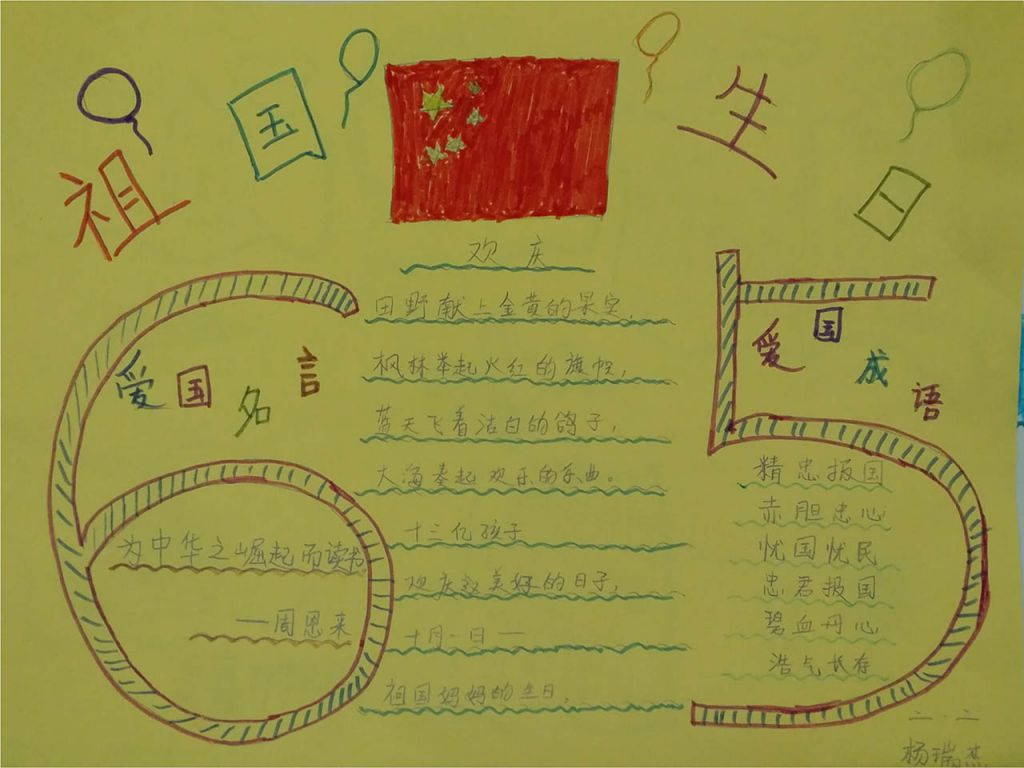 祖国生日
欢庆
田野献上金黄的果实，
枫林举起火红的旗帜，
蓝天飞着洁白的鸽子，
大海奏起欢乐的乐曲。
十三亿孩子
欢庆这美好的日子，
十月一日一
祖国妈妈的生日。
爱国名言
为中华之崛起而读书
一周恩来
爱国成语
精忠报国
赤胆忠心
忧国忧民
忠君报国
碧血丹心
浩气长存
二.二
杨瑞杰